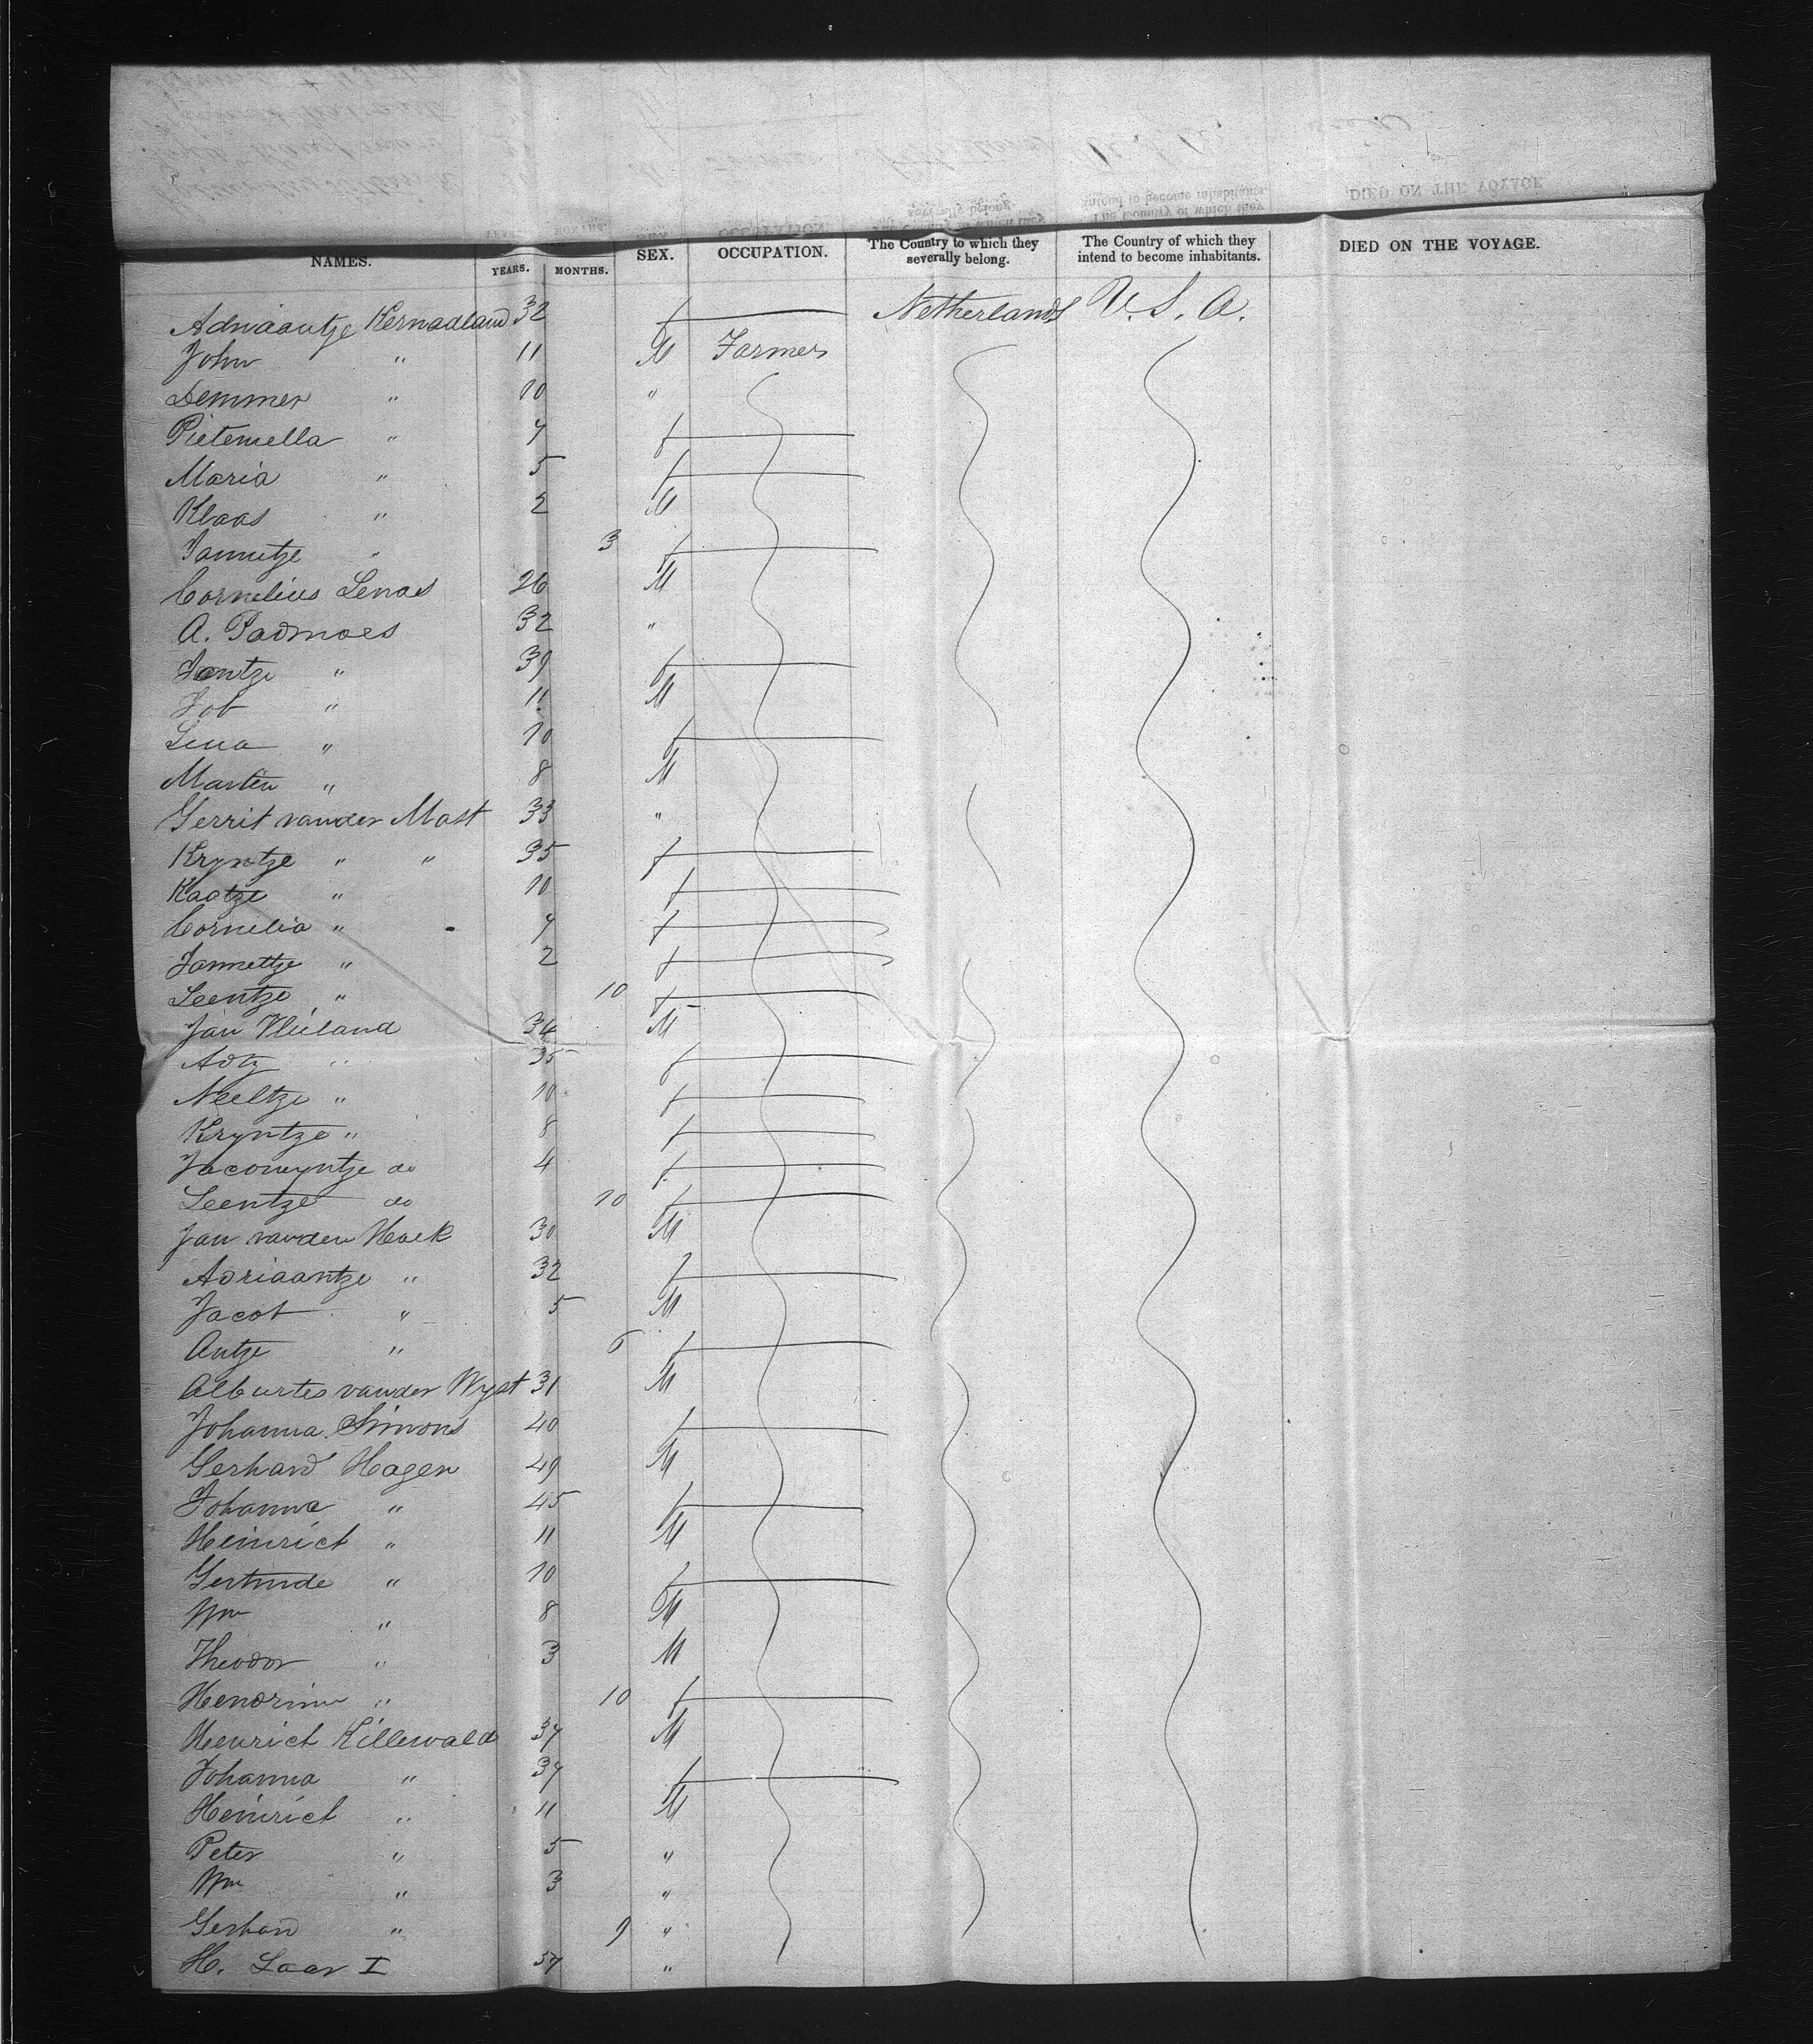 DIED ON THE VOYAGE
The Country of which they
intend to become inhabitants.
severally belong.
NAMES. YEARS. MONTHS. SEX. OCCUPATION. The Country to which they severally belong. The Country of which they intend to become inhabitants. DIED ON THE VOYAGE.
Adriaantje Kernaaland 32 f Netherlands U.S.A.
John " 11 M Farmer
Lemmer " 10 "
Pieternella " 7 f
Maria " 5 f
Klaas " 2 M
Jannetze " 3 f
Cornelius Lenas 26 M
A. Padmoes 32 "
Jantze " 39 f
Job " 11 M
Lena " 10 f
Marten " 8 M
Gerrit vander Mast 33 "
Kryntze " " 35 f
Kaatze " 10 f
Cornelia " 7 f
Jannettze " 2 f
Leentze " 10 f
Jan Vlieland 34 M
Adtz " 35 f
Neeltze " 10 f
Kryntze " 8 f
Jacomyntze do 4 f
Leentze do 10 f
Jan vanden Hoek 30 M
Adriaantze " 32 f
Jacob " 5 M
Antze " 6 f
Albertes vander Wyst 31 M
Johanna Simons 40 f
Gerhard Hagen 49 M
Johanna " 45 f
Heinrich " 11 M
Gertrude " 10 f
Wm " 8 M
Theodor " 3 M
Hendrina " 10 f
Henrich Killewald 37 M
Johanna " 37 f
Heinrich " 11 M
Peter " 5 "
Wm " 3 "
Gerhard " 9 "
H. Laar I 57 "